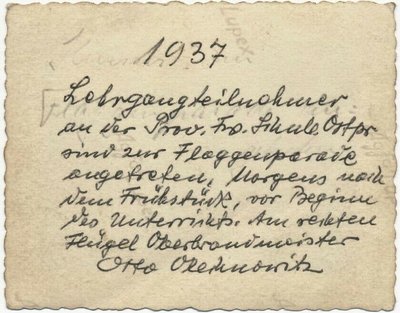 Lupex
1937
Lehrgangteilnehmer
an der Prov. Fw. Schule Ostpr
sind zur Flaggenparade
angetreten, Morgens nach
dem Frühstück, vor Beginn
des Unterrichts. Am rechten
Flügel Oberbrandmeister
Otto Olechnowitz